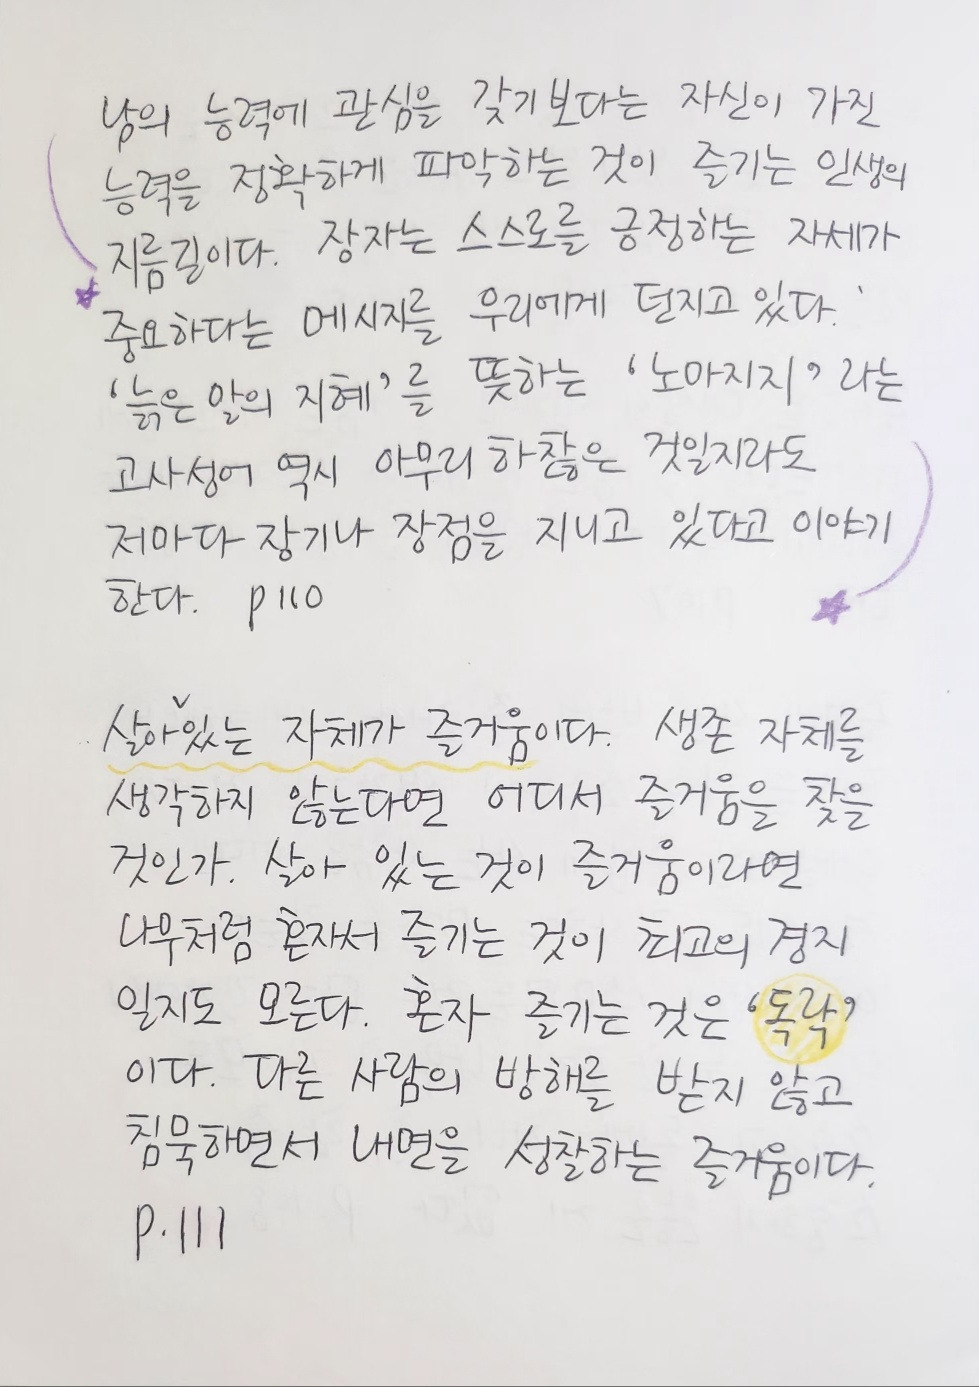 남의 능력에 관심을 갖기보다는 자신이 가진
능력을 정확하게 파악하는 것이 즐기는 인생의
지름길이다. 장자는 스스로를 긍정하는 자세가
중요하다는 메시지를 우리에게 던지고 있다.
'늙은 말의 지혜'를 뜻하는 '노마지지'라는
고사성어 역시 아무리 하찮은 것일지라도
저마다 장기나 장점을 지니고 있다고 이야기
한다. p110
살아있는 자체가 즐거움이다. 생존 자체를
생각하지 않는다면 어디서 즐거움을 찾을
것인가. 살아 있는 것이 즐거움이라면
나무처럼 혼자서 즐기는 것이 최고의 경지
일지도 모른다. 혼자 즐기는 것은 '독락'
이다. 다른 사람의 방해를 받지 않고
침묵하면서 내면을 성찰하는 즐거움이다.
p.111